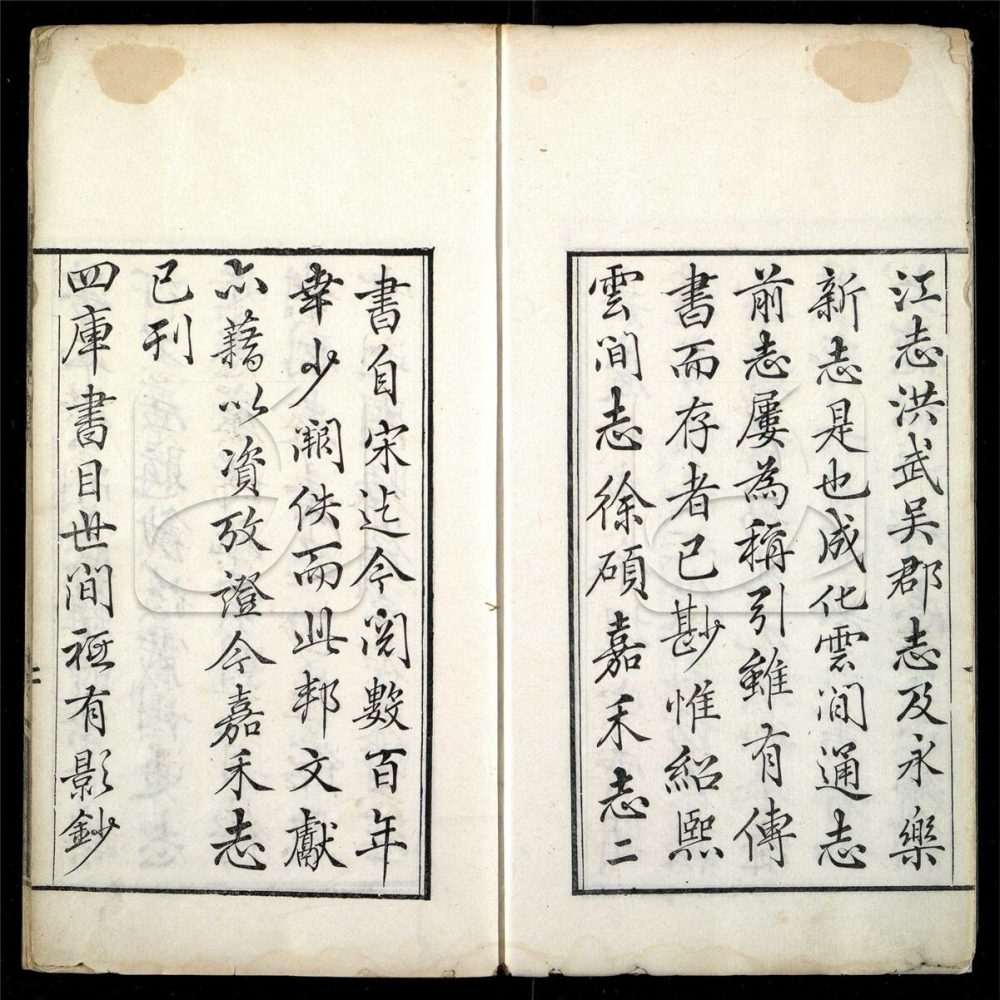 江志洪武吴郡志及永樂
新志是也成化雲间通志
前志屢為稱引雖有傳
書而存者已尠惟紹熙
雲间志徐碩嘉禾志二
書自宋迄今閱數百年
幸少闕佚而此邦文獻
亦藉以資攷證今嘉禾志
已刊
四庫書目世间祗有影鈔